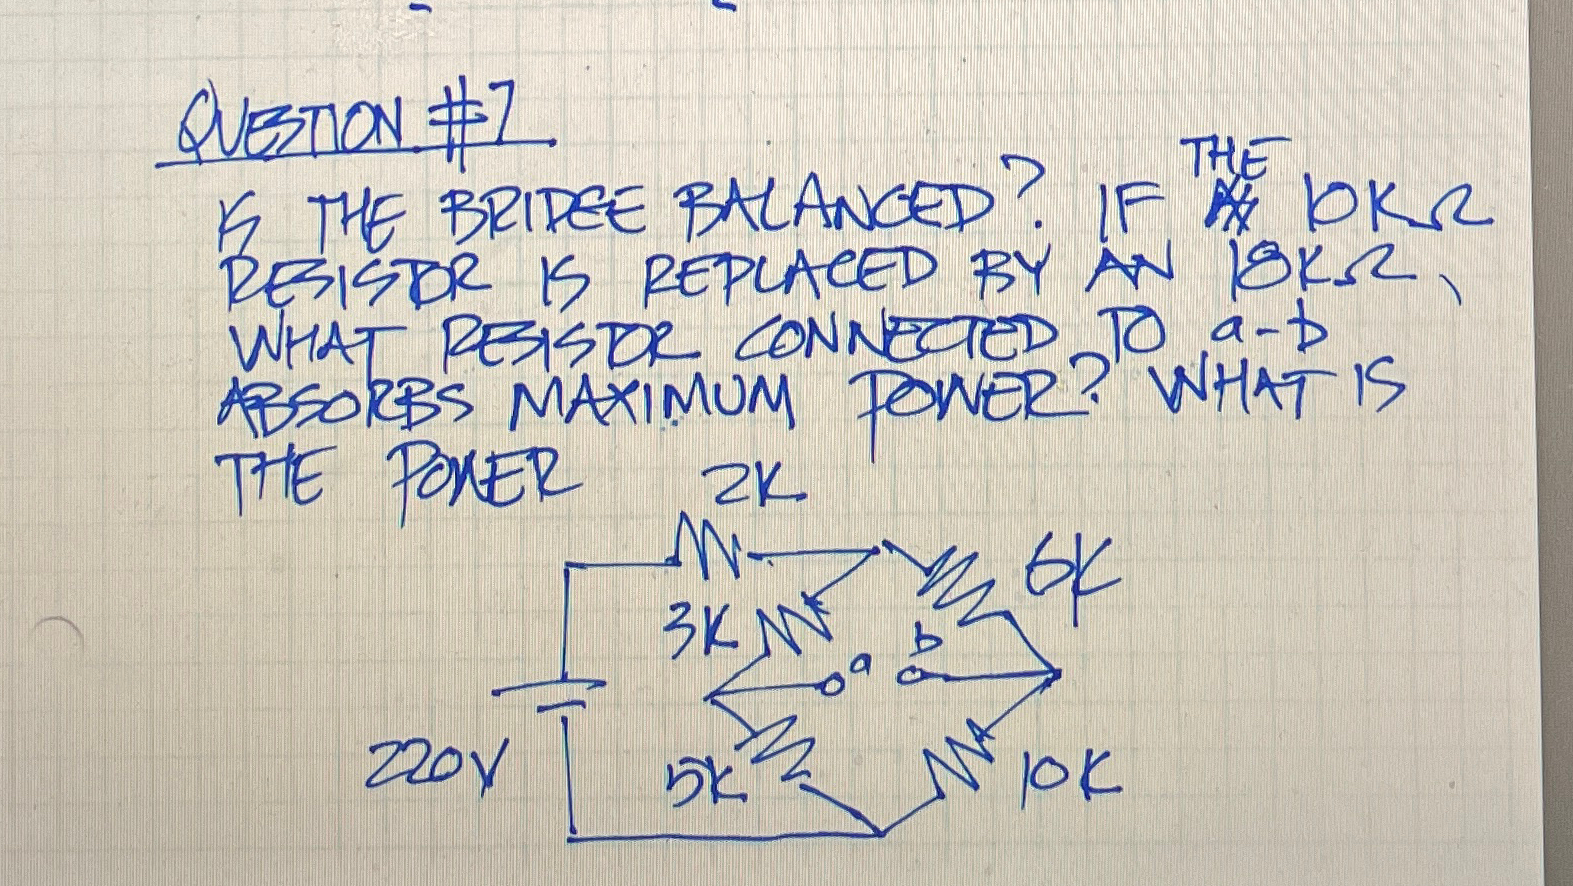 QUESTION #7
IS THE BRIDGE BALANCED? IF THE 10KΩ
RESISTOR IS REPLACED BY AN 18KΩ,
WHAT RESISTOR CONNECTED TO a-b
ABSORBS MAXIMUM POWER? WHAT IS
THE POWER
2K
6K
3K
a
b
220V
5K
10K